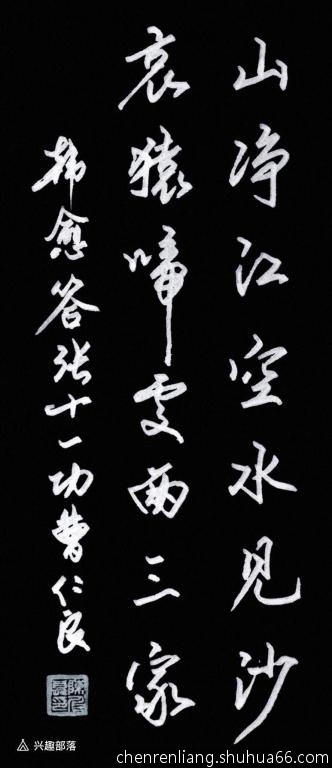 山净江空水见沙
哀猿啼处两三家
韩愈答张十一功曹仁良
兴趣部落
chenrenliang.shuhua66.com